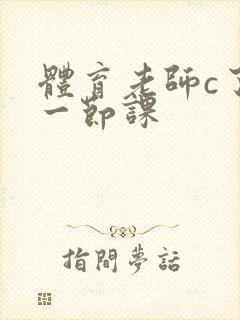 體育老師c了
一節課
指間夢話